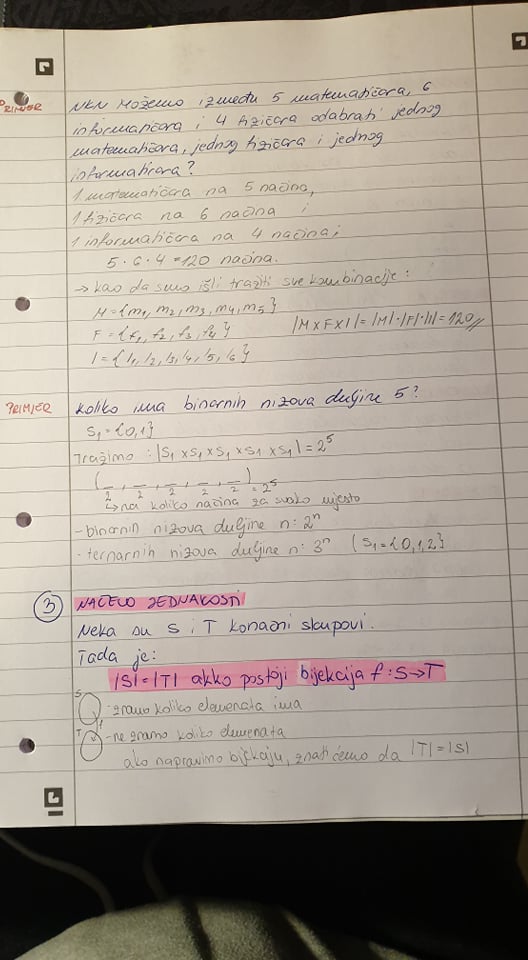 PRIMJER
NKN možemo između 5 matematičara, 6
informatičara i 4 fizičara odabrati jednog
matematičara, jednog fizičara i jednog
informatičara?
1 matematičara na 5 načina,
1 fizičara na 6 načina i
1 informatičara na 4 načina;
5·6·4=120 načina.
→ kao da smo išli tražiti sve kombinacije:
M={m₁, m₂, m₃, m₄, m₅}
F={f₁, f₂, f₃, f₄} |M×F×I|=|M|·|F|·|I|=120//
I={i₁, i₂, i₃, i₄, i₅, i₆}
PRIMJER
Koliko ima binarnih nizova duljine 5?
S₁={0,1}
Tražimo: |S₁×S₁×S₁×S₁×S₁|=2⁵
( _ , _ , _ , _ , _ )
2 2 2 2 2 =2⁵
↳ na koliko načina za svako mjesto
- binarnih nizova duljine n: 2ⁿ
- ternarnih nizova duljine n: 3ⁿ (S₁={0,1,2})
3 NAČELO JEDNAKOSTI
Neka su S i T konačni skupovi.
Tada je:
|S|=|T| akko postoji bijekcija f:S→T
S - znamo koliko elemenata ima
f
T - ne znamo koliko elemenata
ako napravimo bijekciju, znati ćemo da |T|=|S|